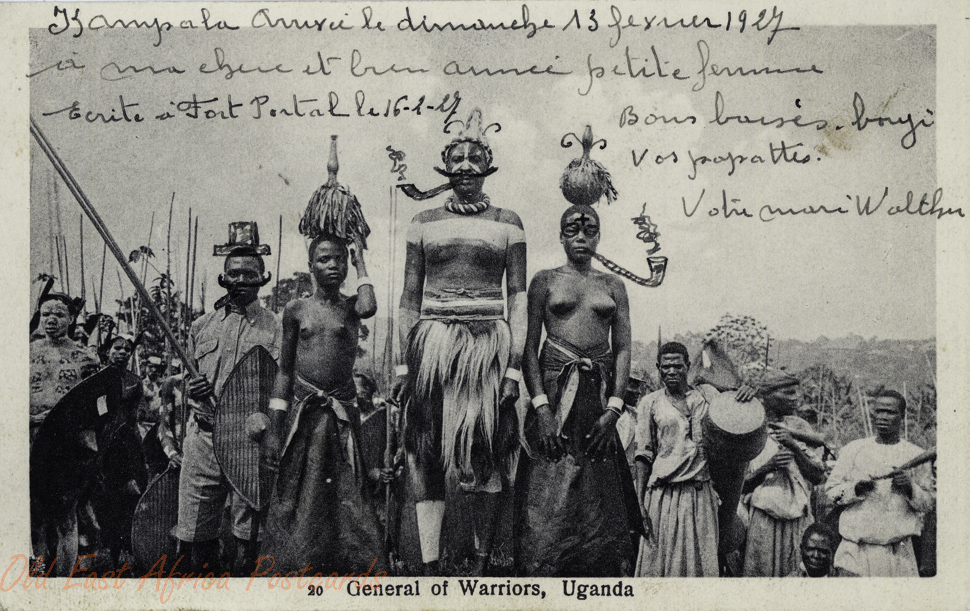 Kampala Arrivée le dimanche 13 fevrier 1927
à ma chere et bien aimée petite femme
Ecrite à Fort Portal le 16-2-27
Bons baisés.
vos papattes.
Votre mari Walther
20 General of Warriors, Uganda
Old East Africa Postcards